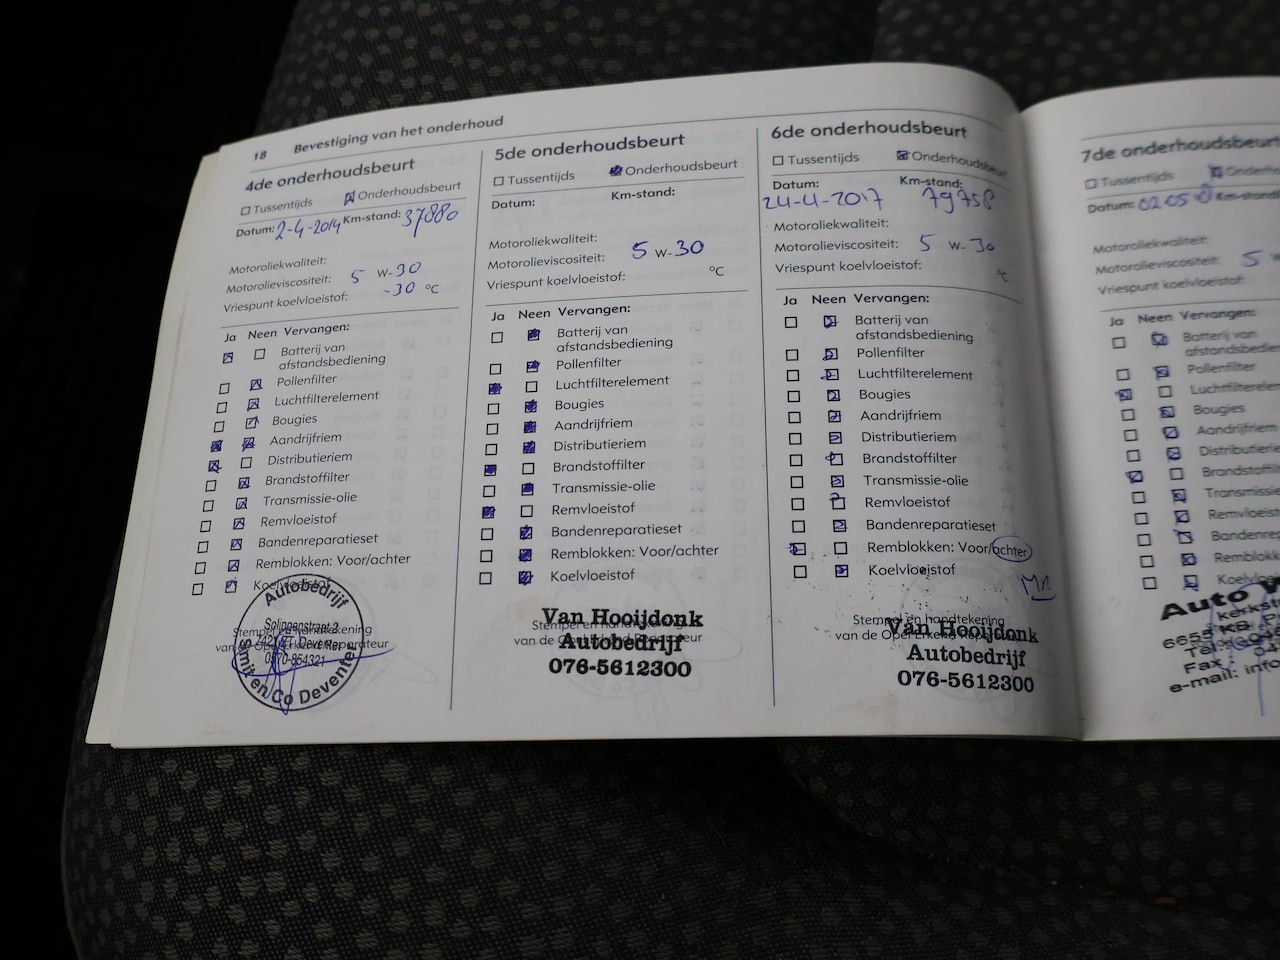 18 Bevestiging van het onderhoud
4de onderhoudsbeurt
Tussentijds Onderhoudsbeurt
Datum: 2-4-2014 Km-stand: 37880
Motoroliekwaliteit:
Motorolieviscositeit: 5 W-30
Vriespunt koelvloeistof: -30 °C
Ja Neen Vervangen:
Batterij van
afstandsbediening
Pollenfilter
Luchtfilterelement
Bougies
Aandrijfriem
Distributieriem
Brandstoffilter
Transmissie-olie
Remvloeistof
Bandenreparatieset
Remblokken: Voor/achter
Koelvloeistof
Stempel en handtekening
van de Opel Erkend Reparateur
Autobedrijf
Solingenstraat 2
Deventer
0570-854321
Smit en Co Deventer
5de onderhoudsbeurt
Tussentijds Onderhoudsbeurt
Datum: Km-stand:
Motoroliekwaliteit:
Motorolieviscositeit: 5 W-30
Vriespunt koelvloeistof: °C
Ja Neen Vervangen:
Batterij van
afstandsbediening
Pollenfilter
Luchtfilterelement
Bougies
Aandrijfriem
Distributieriem
Brandstoffilter
Transmissie-olie
Remvloeistof
Bandenreparatieset
Remblokken: Voor/achter
Koelvloeistof
Stempel en handtekening
van de Opel Erkend Reparateur
Van Hooijdonk
Autobedrijf
076-5612300
6de onderhoudsbeurt
Tussentijds Onderhoudsbeurt
Datum: Km-stand:
24-4-2017 79758
Motoroliekwaliteit:
Motorolieviscositeit: 5 W-30
Vriespunt koelvloeistof: °C
Ja Neen Vervangen:
Batterij van
afstandsbediening
Pollenfilter
Luchtfilterelement
Bougies
Aandrijfriem
Distributieriem
Brandstoffilter
Transmissie-olie
Remvloeistof
Bandenreparatieset
Remblokken: Voor/achter
Koelvloeistof
Stempel en handtekening
van de Opel Erkend Reparateur
Van Hooijdonk
Autobedrijf
076-5612300
7de onderhoudsbeurt
Tussentijds Onderh
Datum: 02 05 Km-stand:
Motoroliekwaliteit:
Motorolieviscositeit: 5
Vriespunt koelvloeistof:
Ja Neen Vervangen:
Batterij van
afstandsbedien
Pollenfilter
Luchtfilterele
Bougies
Aandrijfriem
Distributierie
Brandstoffilt
Transmissie
Remvloeisto
Bandenrep
Remblokk
Koelvloei
Auto
kerkstr
6655 KB
Tel
Fax
e-mail: info